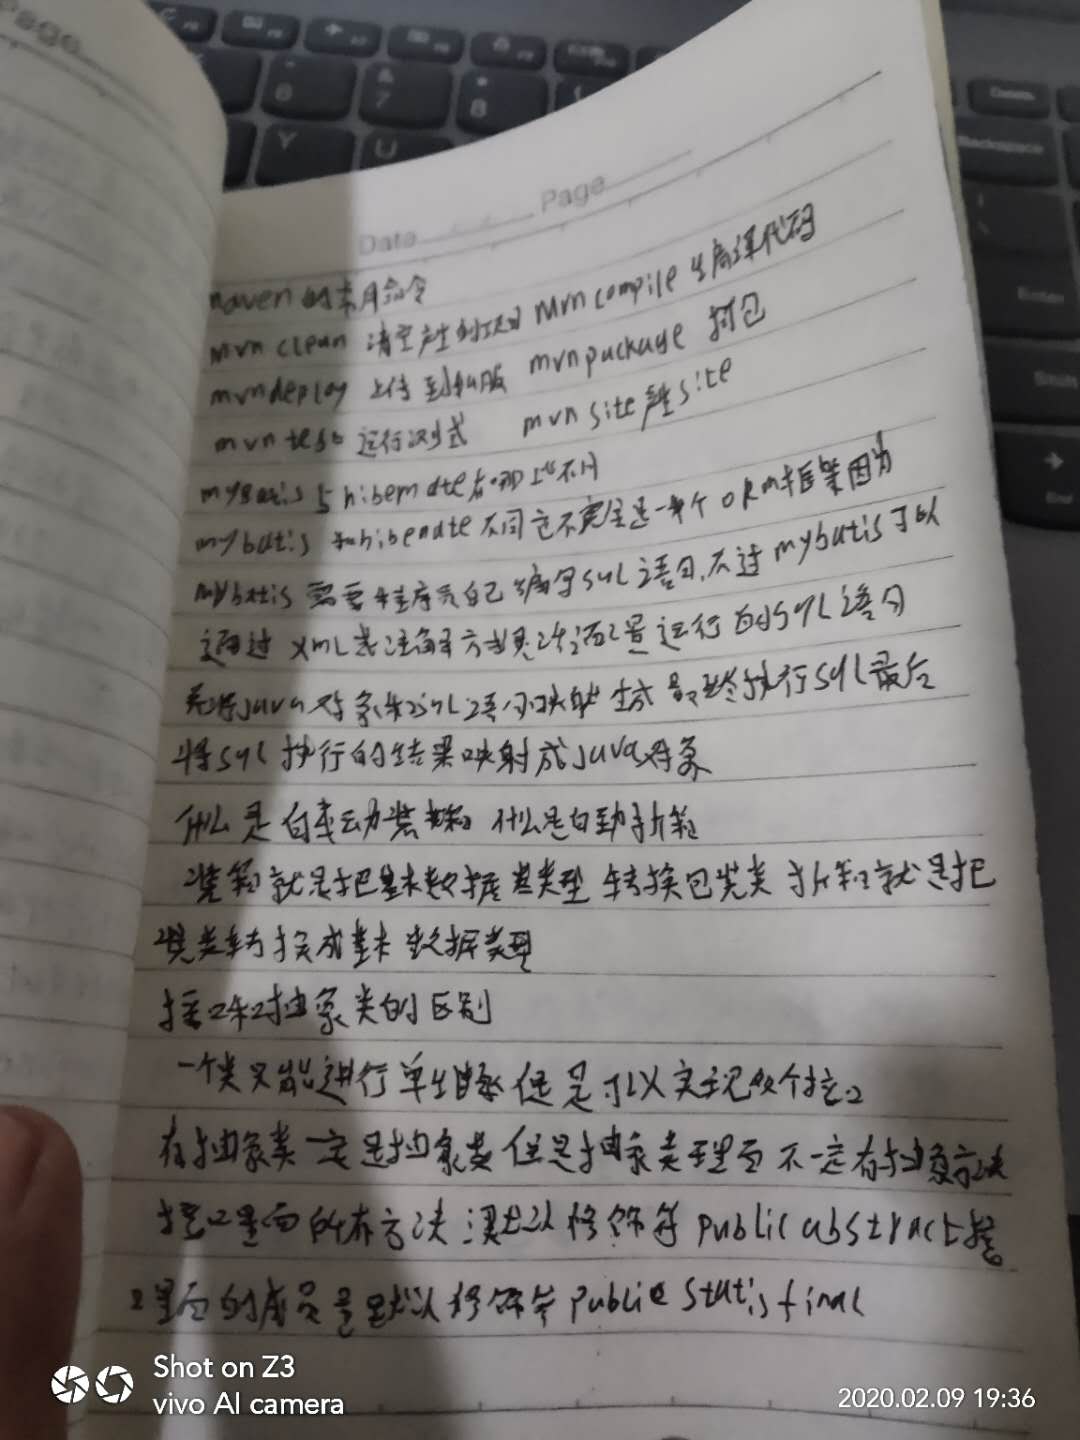 Page
Data Page
maven的常用命令
mvn clean 清空产生的项目 mvn compile 编译源代码
mvn deploy 上传到私服 mvn package 打包
mvn test 运行测试 mvn site 产生site
mybatis与hibernate有哪些不同
mybatis和hibenate不同它不完全是一个ORM框架因为
mybatis需要程序员自己编写sql语句,不过mybatis可以
通过XML或注解方式灵活配置运行的sql语句
并将java对象和sql语句映射生成最终执行sql最后
将sql执行的结果映射成java对象
什么是自动装箱 什么是自动拆箱
装箱就是把基本数据类型转换包装类 拆箱就是把
装类转换成基本数据类型
接口和抽象类的区别
一个类只能进行单继承但是可以实现多个接口
有抽象类一定是抽象类但是抽象类里面不一定有抽象方法
接口里面所有方法默认修饰符public abstract接
口里面的成员是默认修饰符public static final
Shot on Z3
vivo AI camera
2020.02.09 19:36
6
7
8
Y
U
Delete
Backspace
Enter
Shift
End